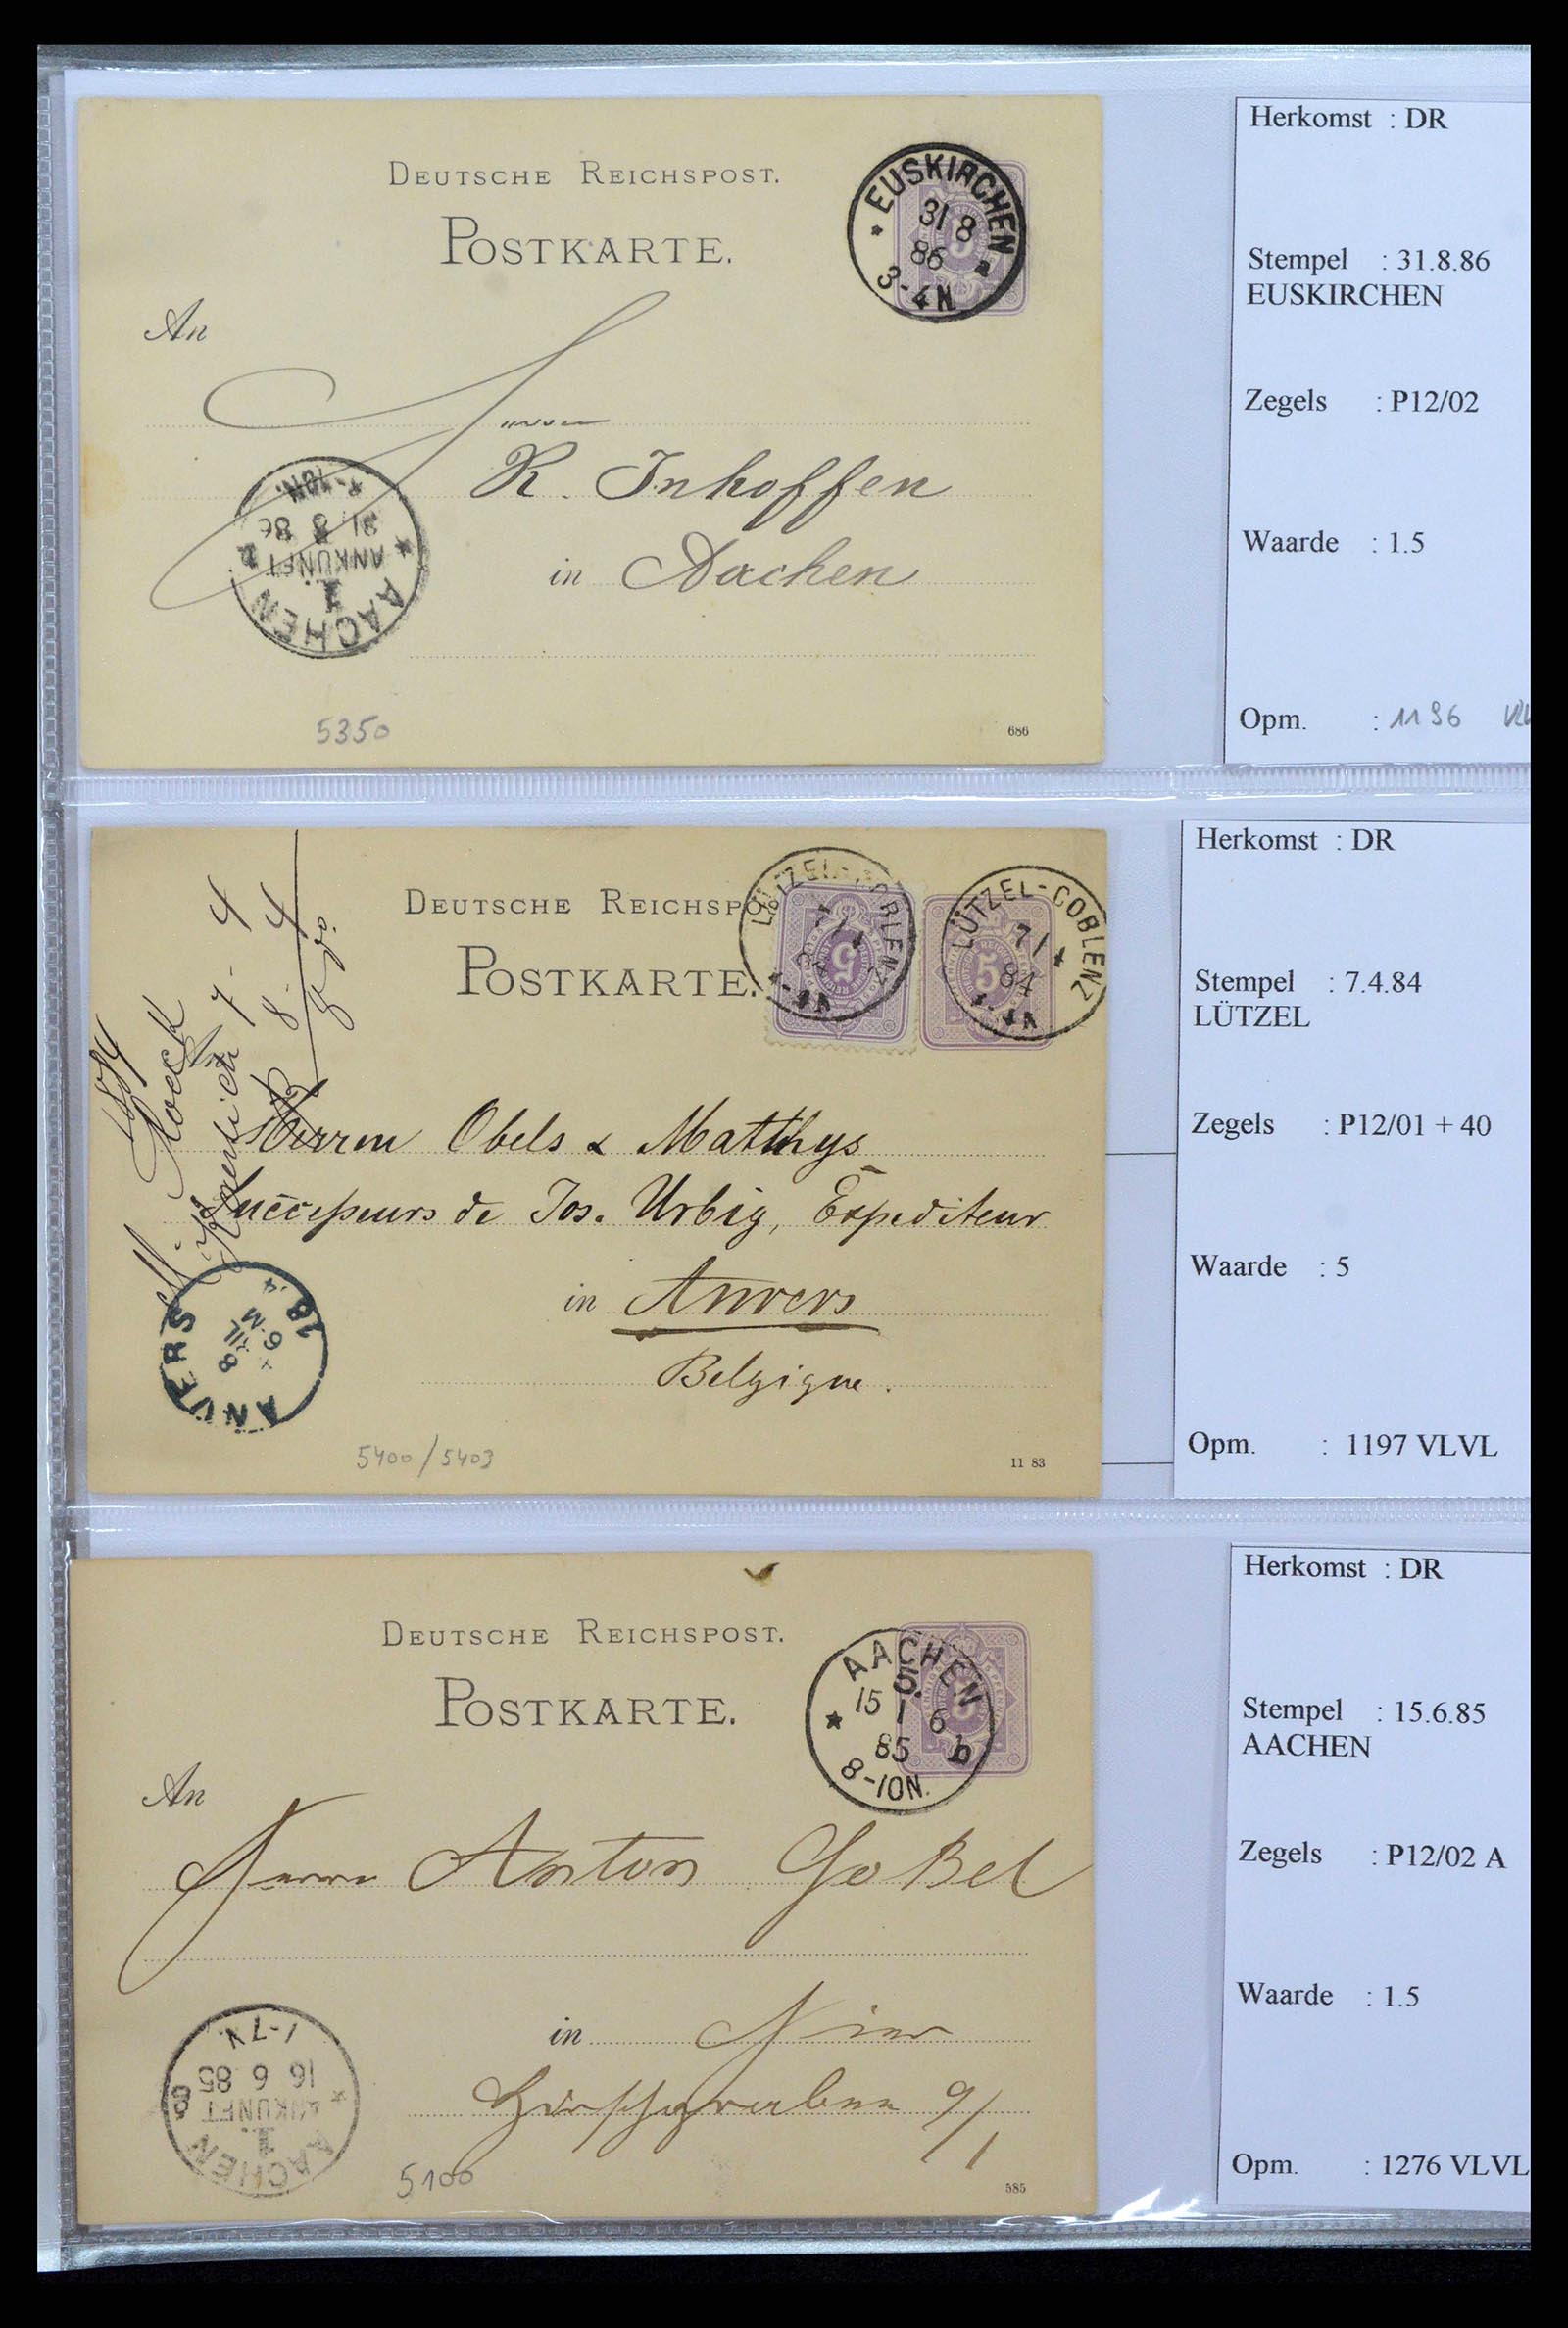 DEUTSCHE REICHSPOST.
POSTKARTE.
EUSKIRCHEN
31 8
86
3-4N
An
R. Inhoffen
in Aachen
AACHEN
1.
ANKUNFT
31 8 86
5350
686
Herkomst : DR
Stempel : 31.8.86
EUSKIRCHEN
Zegels : P12/02
Waarde : 1.5
Opm. : 1196
DEUTSCHE REICHSPO
POSTKARTE.
LÜTZEL-COBLENZ
5
LÜTZEL-COBLENZ
7/4
84
5
1884
7-4
8-4
Herren Obels & Matthys
Successeurs de Jos. Urbig, Expediteur
in Anvers
Belgique.
ANVERS
8
6-M
5400/5403
11 83
Herkomst : DR
Stempel : 7.4.84
LÜTZEL
Zegels : P12/01 + 40
Waarde : 5
Opm. : 1197 VLVL
DEUTSCHE REICHSPOST.
POSTKARTE.
AACHEN
5.
15/6
85 b
8-10N.
An
Herrn Anton Gobel
in Hier
Hirschgraben 9/1
AACHEN
1.
ANKUNFT
16 6 85
1-7V.
5100
585
Herkomst : DR
Stempel : 15.6.85
AACHEN
Zegels : P12/02 A
Waarde : 1.5
Opm. : 1276 VLVL